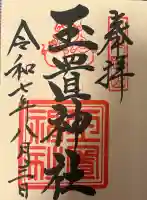 奉拝
玉置神社
令和七年八月三日